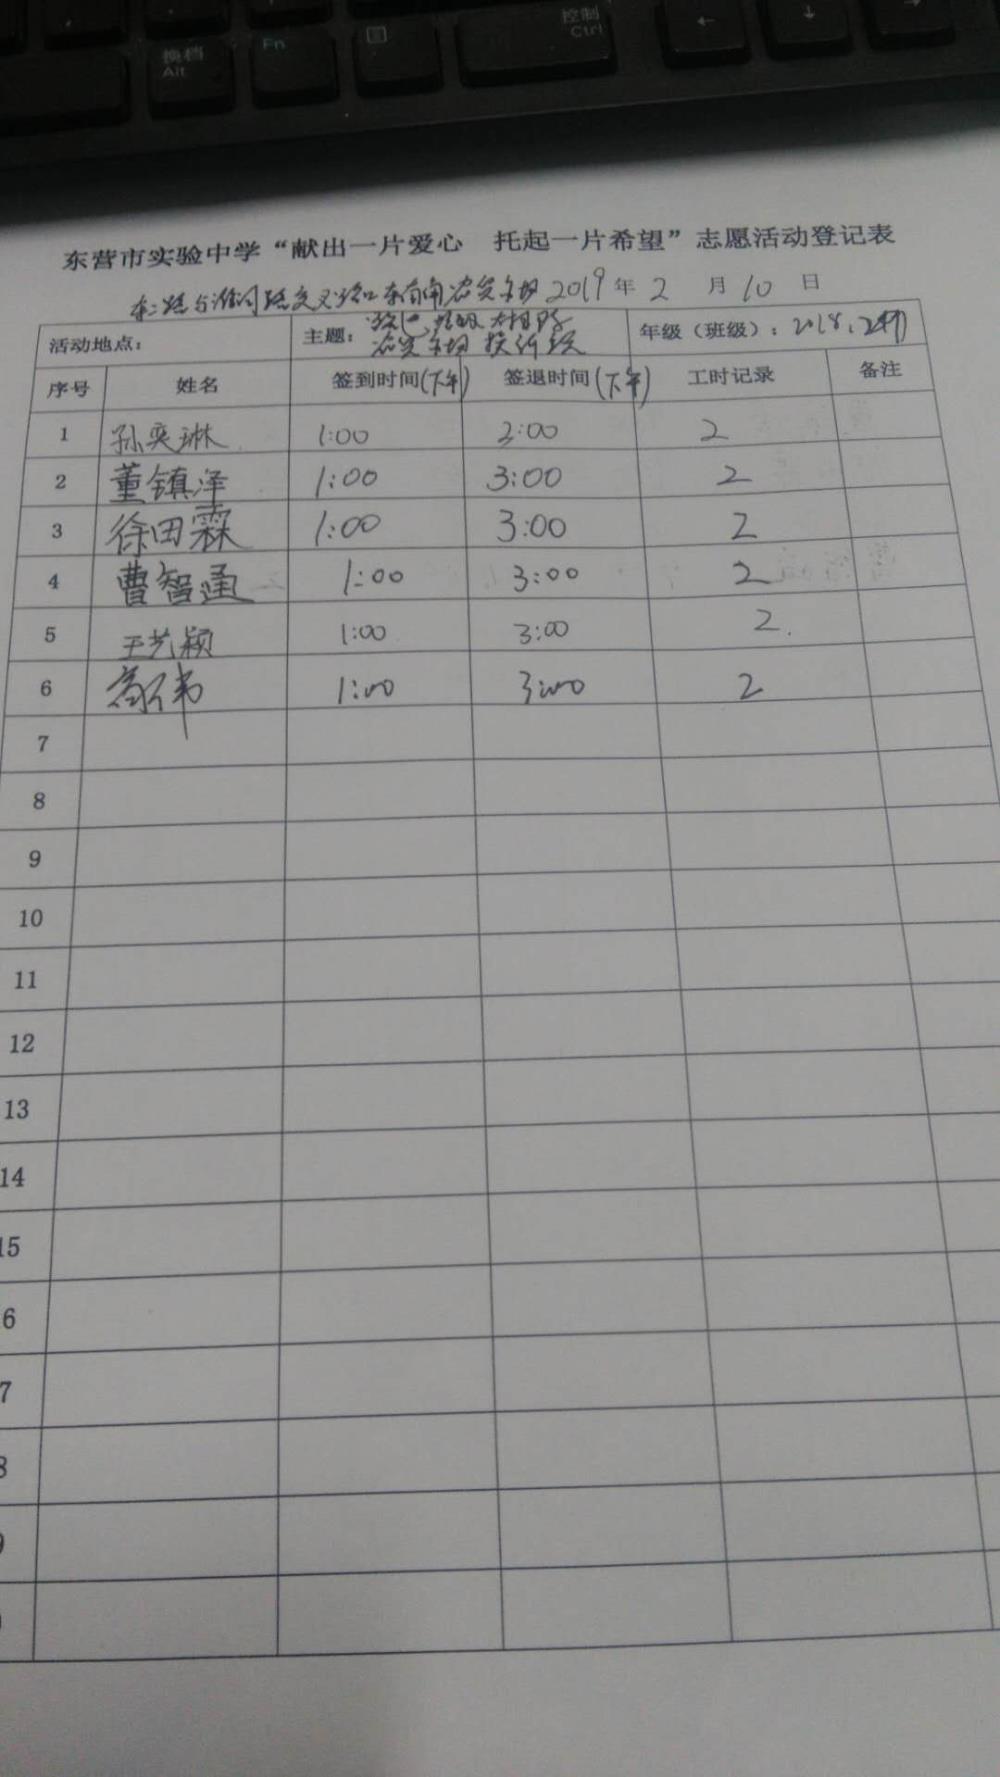 换档 Alt Fn 控制 Ctrl ← ↓ →
东营市实验中学“献出一片爱心 托起一片希望”志愿活动登记表
东二路与淮河路交叉路口东南农贸市场 2019年2月10日
活动地点： 主题： 农贸市场 年级（班级）：2018.
序号 姓名 签到时间(下午) 签退时间(下午) 工时记录 备注
1 孙奕琳 1:00 3:00 2
2 董镇泽 1:00 3:00 2
3 徐田霖 1:00 3:00 2
4 曹智通 1:00 3:00 2
5 王艺颖 1:00 3:00 2.
6 1:00 3:00 2
7
8
9
10
11
12
13
14
15
6
7
8
9